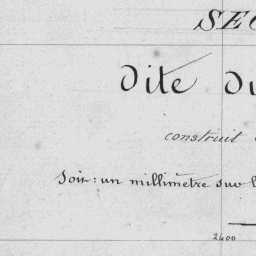 SEC
Dite Du
construit
Soit : un millimètre sur l
2400